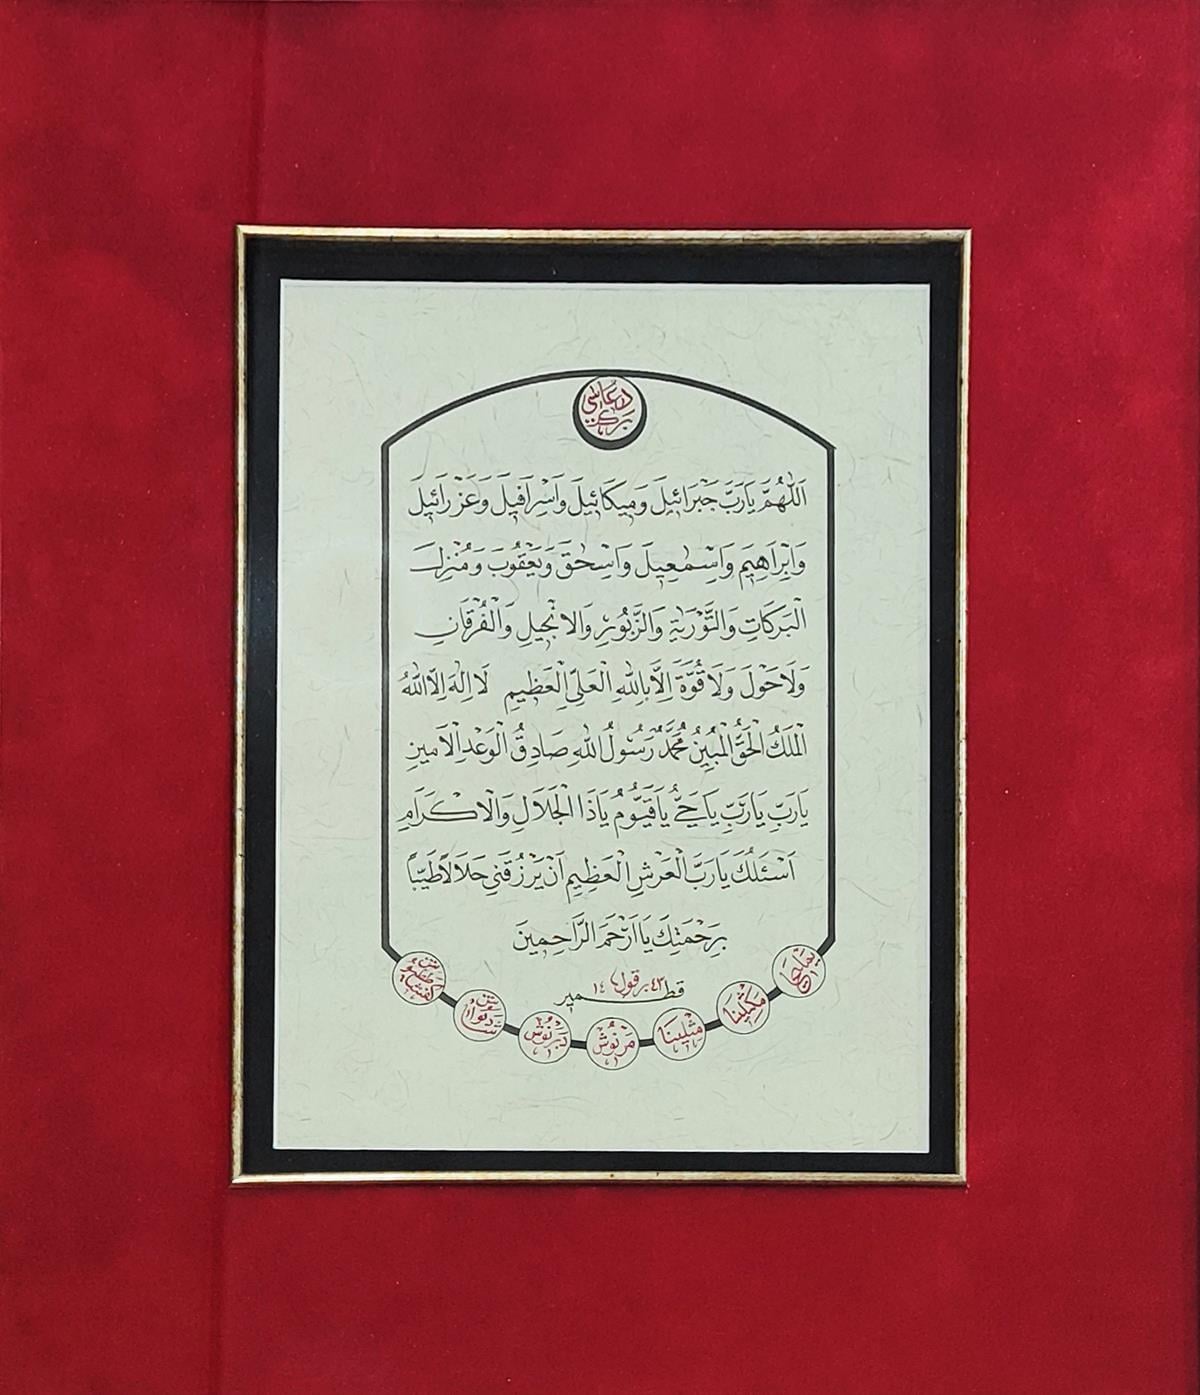 دعاسي
بركر
اَللّٰهُمَّ يَارَبَّ جَبْرَائِيلَ وَمِيكَائِيلَ وَاَسِرَافِيلَ وَعَزْرَائِيلَ
وَاِبْرَاهِيَم وَاِسْمٰعِيلَ وَاَسِحٰقَ وَيَعْقُوبَ وَمُنْزِلَ
الْبَرَكَاتِ وَالتَّوْرٰيةِ وَالزَّبُورِ وَالاِنْجِيلِ وَالْفُرْقَانِ
وَلَاحَوْلَ وَلَا قُوَّةَ اِلَّا بِاللّٰهِ الْعَلِىِّ الْعَظِيمِ لَا اِلٰهَ اِلَّا اللّٰهُ
الْمَلِكُ الْحَقُّ الْمُبِينُ مُحَمَّدٌ رَسُولُ اللّٰهِ صَادِقُ الْوَعْدِ الْاَمِينِ
يَارَبِّ يَارَبِّ يَاحَىُّ يَاقَيُّومُ يَاذَا الْجَلَالِ وَالْاِكْرَامِ
اَسْئَلُكَ يَارَبَّ الْعَرْشِ الْعَظِيمِ اَنْ يَرْزُقَنِى حَلَالاً طَيِّباً
بِرَحْمَتِكَ يَا اَرْحَمَ الرَّاحِمِينَ
قطمير
يمليخا
مكثلينا
مثلينا
مرنوش
دبرنوش
شاذنوش
كفشططيوش